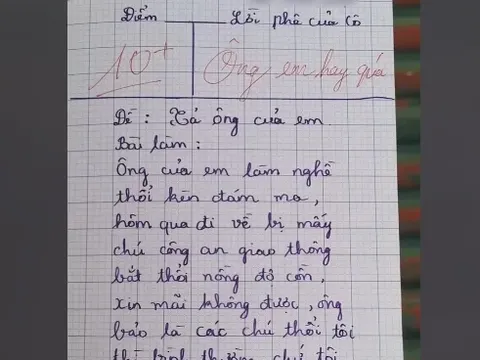 Điểm Lời phê của cô
10+ Ông em hay quá
Đề : Tả ông của em.
Bài làm :
Ông của em làm nghề
thổi kèn đám ma,
hôm qua đi về bị mấy
chú công an giao thông
bắt thổi nồng độ cồn,
xin mãi không được, ông
bảo là các chú thổi tôi
thì bình thường chứ tôi